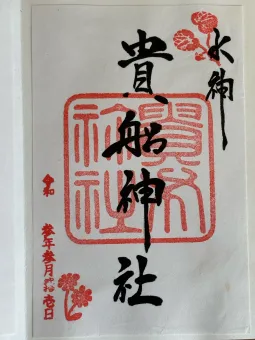 水神
貴船神社
貴船神社
令和
参年参月拾壱日